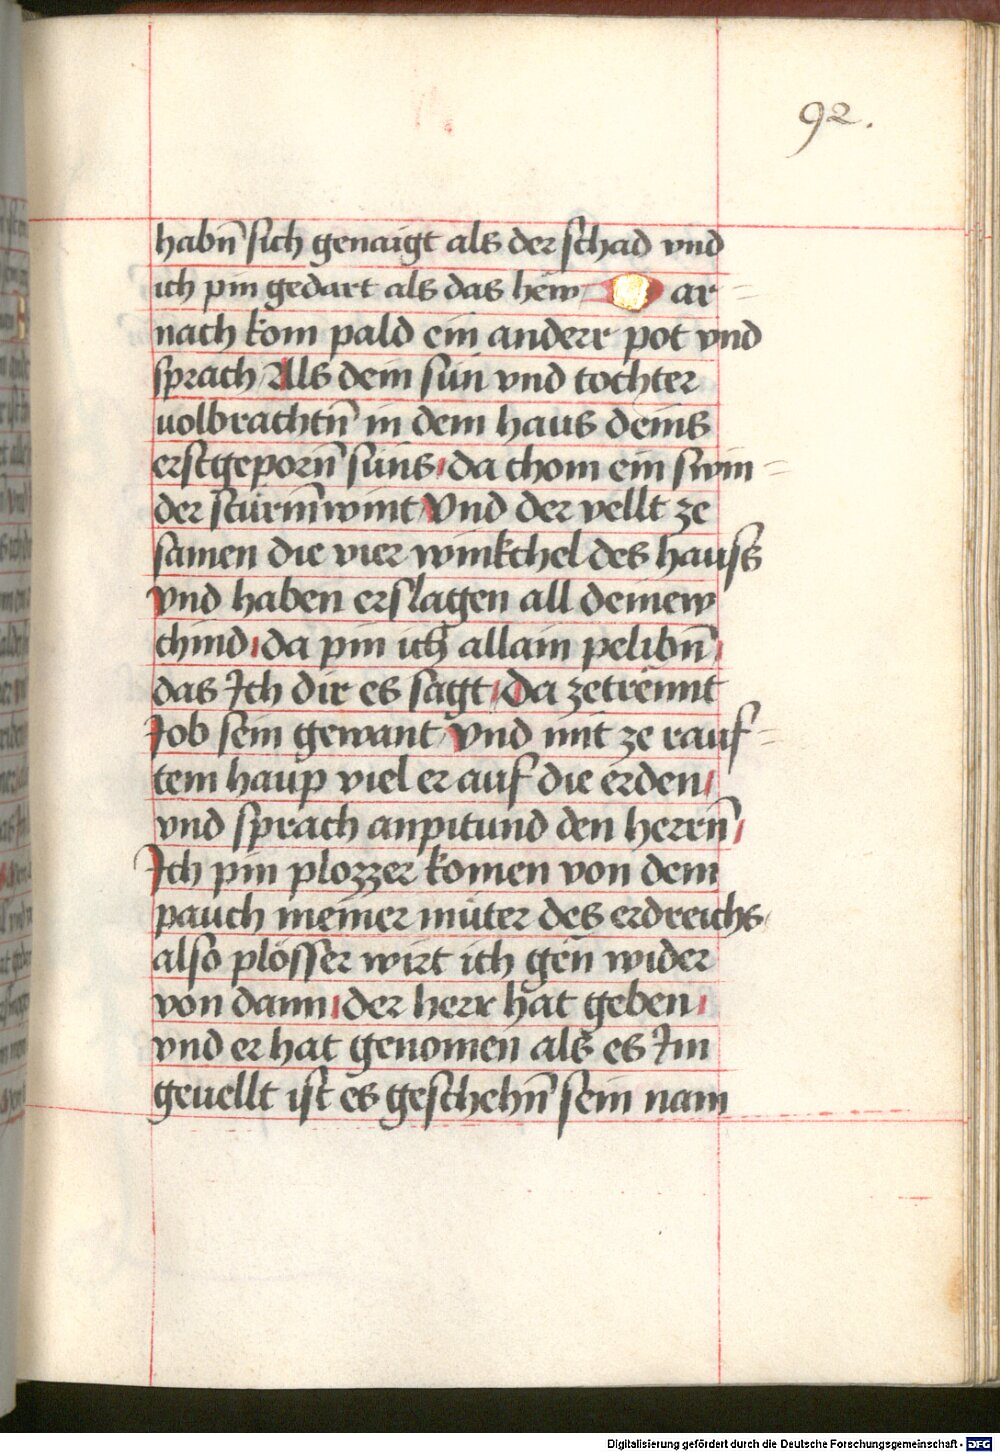 92.
habn̄ sich genaigt als der schad vnd
ich pin gedart als das hëw ar=
nach kom pald ein anderr pot vnd
sprach Als dein sün vnd tochter
uolbrachtn̄ in dem haus deins
erstgeporn̄ süns da chom ein swin=
der stürmwint Vnd der vellt ze
samen die vier winkchel des hauss
vnd haben erslagen all deinew
chind da pin ich allain pelibn̄
das Ich dir es sagt Da zetrennt
Job sein gewant Vnd mit ze rauf=
tem haup viel er auf die erden
vnd sprach anpitund den herrn̄
Ich pin plozzer komen von dem
pauch meiner müter des erdreichs
also plösser wirt ich gen wider
von dann der herr hat geben
vnd er hat genomen als es Im
geuellt ist es geschehn̄ sein nam
Digitalisierung gefördert durch die Deutsche Forschungsgemeinschaft - DFG